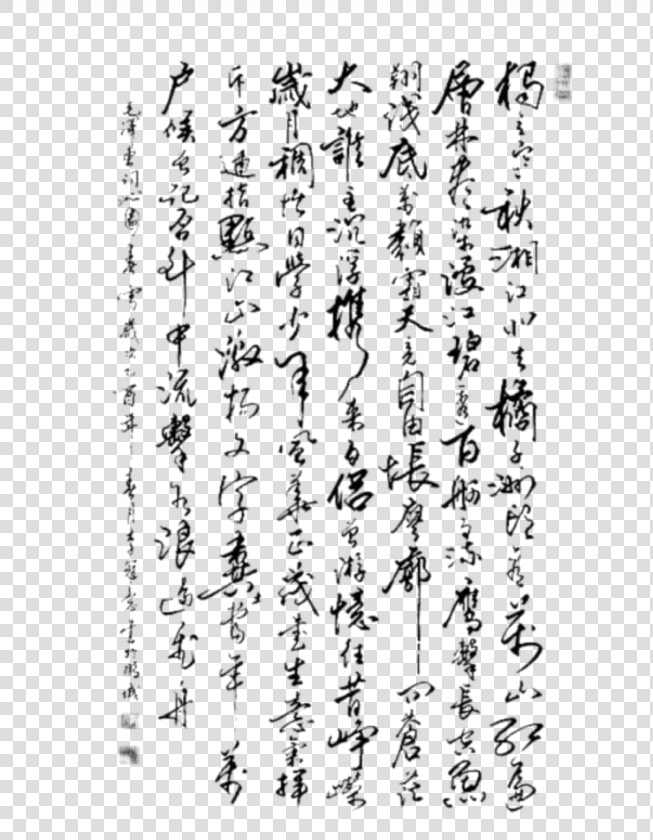 獨立寒秋湘江北去橘子洲頭看萬山紅遍
層林盡染漫江碧透百舸爭流鷹擊長空魚
翔淺底萬類霜天競自由悵寥廓問蒼茫
大地誰主沉浮攜來百侶曾游憶往昔崢嶸
歲月稠恰同學少年風華正茂書生意氣揮
斥方遒指點江山激揚文字糞土當年萬
户候曾記否到中流擊水浪遏飛舟
毛澤東詞沁園春歲次乙酉年春月李書於鵬城